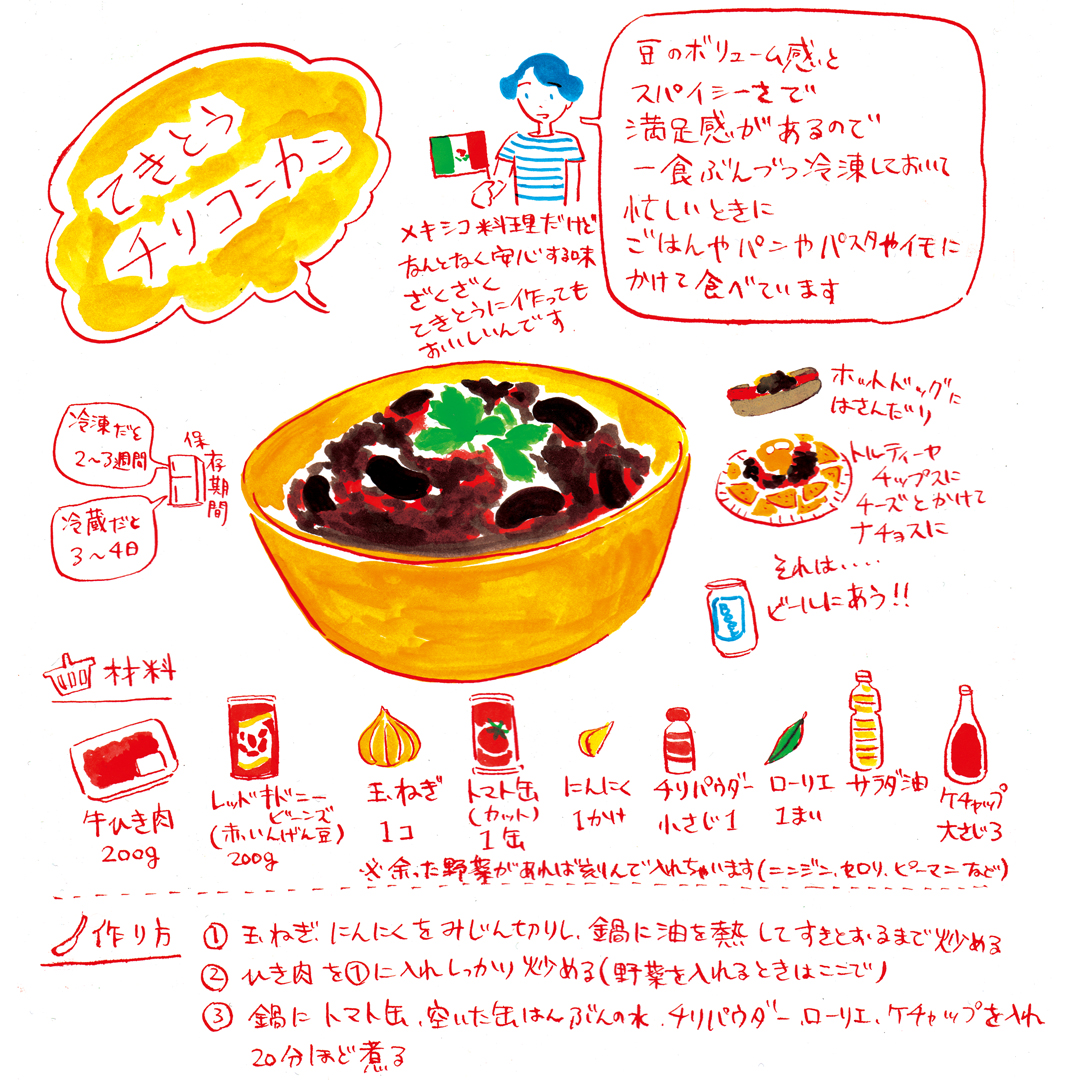 てきとう
チリコンカン
豆のボリューム感と
スパイシーさで
満足感があるので
一食ぶんづつ冷凍しておいて
忙しいときに
ごはんやパンやパスタやイモに
かけて食べています
メキシコ料理だけど
なんとなく安心する味
ざくざく
てきとうに作っても
おいしいんです
冷凍だと
2〜3週間
保存期間
冷蔵だと
3〜4日
ホットドッグに
はさんだり
トルティーヤ
チップスに
チーズとかけて
ナチョスに
それは・・・・
ビールにあう!!
BEER
材料
牛ひき肉
200g
レッドキドニー
ビーンズ
(赤いんげん豆)
200g
玉ねぎ
1コ
トマト缶
(カット)
1缶
にんにく
1かけ
チリパウダー
小さじ1
ローリエ
1まい
サラダ油
ケチャップ
大さじ3
※余った野菜があれば刻んで入れちゃいます(ニンジン、セロリ、ピーマンなど)
作り方
① 玉ねぎ、にんにくをみじん切りし、鍋に油を熱してすきとおるまで炒める
② ひき肉を①に入れしっかり炒める(野菜を入れるときはここで)
③ 鍋にトマト缶、空いた缶はんぶんの水、チリパウダー、ローリエ、ケチャップを入れ
20分ほど煮る